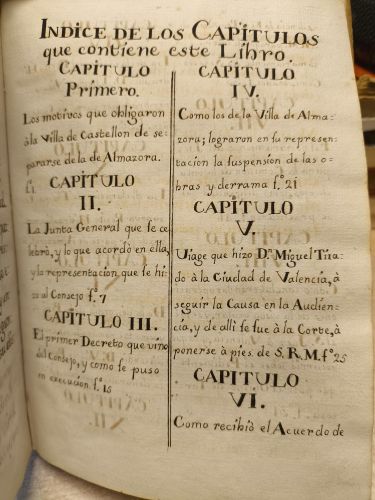 INDICE DE LOS CAPITULOS
que contiene este Libro.
CAPITULO
Primero.
Los motivos que obligaron
à la Villa de Castellon de se-
pararse de la de Almazora.
f.1
CAPITULO
II.
La Junta General que se ce
lebrò, y lo que acordò en ella,
y la representacion que se hi
zo al Consejo f. 7
CAPITULO III.
El primer Decreto que vino
del Consejo, y como se puso
en execucion. fº 15
CAPITULO
IV.
Como los de la Villa de Alma-
zora; lograron en su represen-
tacion la suspension de las o-
bras y derrama fº 21
CAPITULO
V.
Viage que hizo Dn Miguel Tira-
do à la Ciudad de Valencia, à
seguir la Causa en la Audien-
cia, y de alli se fue à la Corte, à
ponerse à pies de S. R. M. fº 25
CAPITULO
VI.
Como recibiò el Acuerdo de